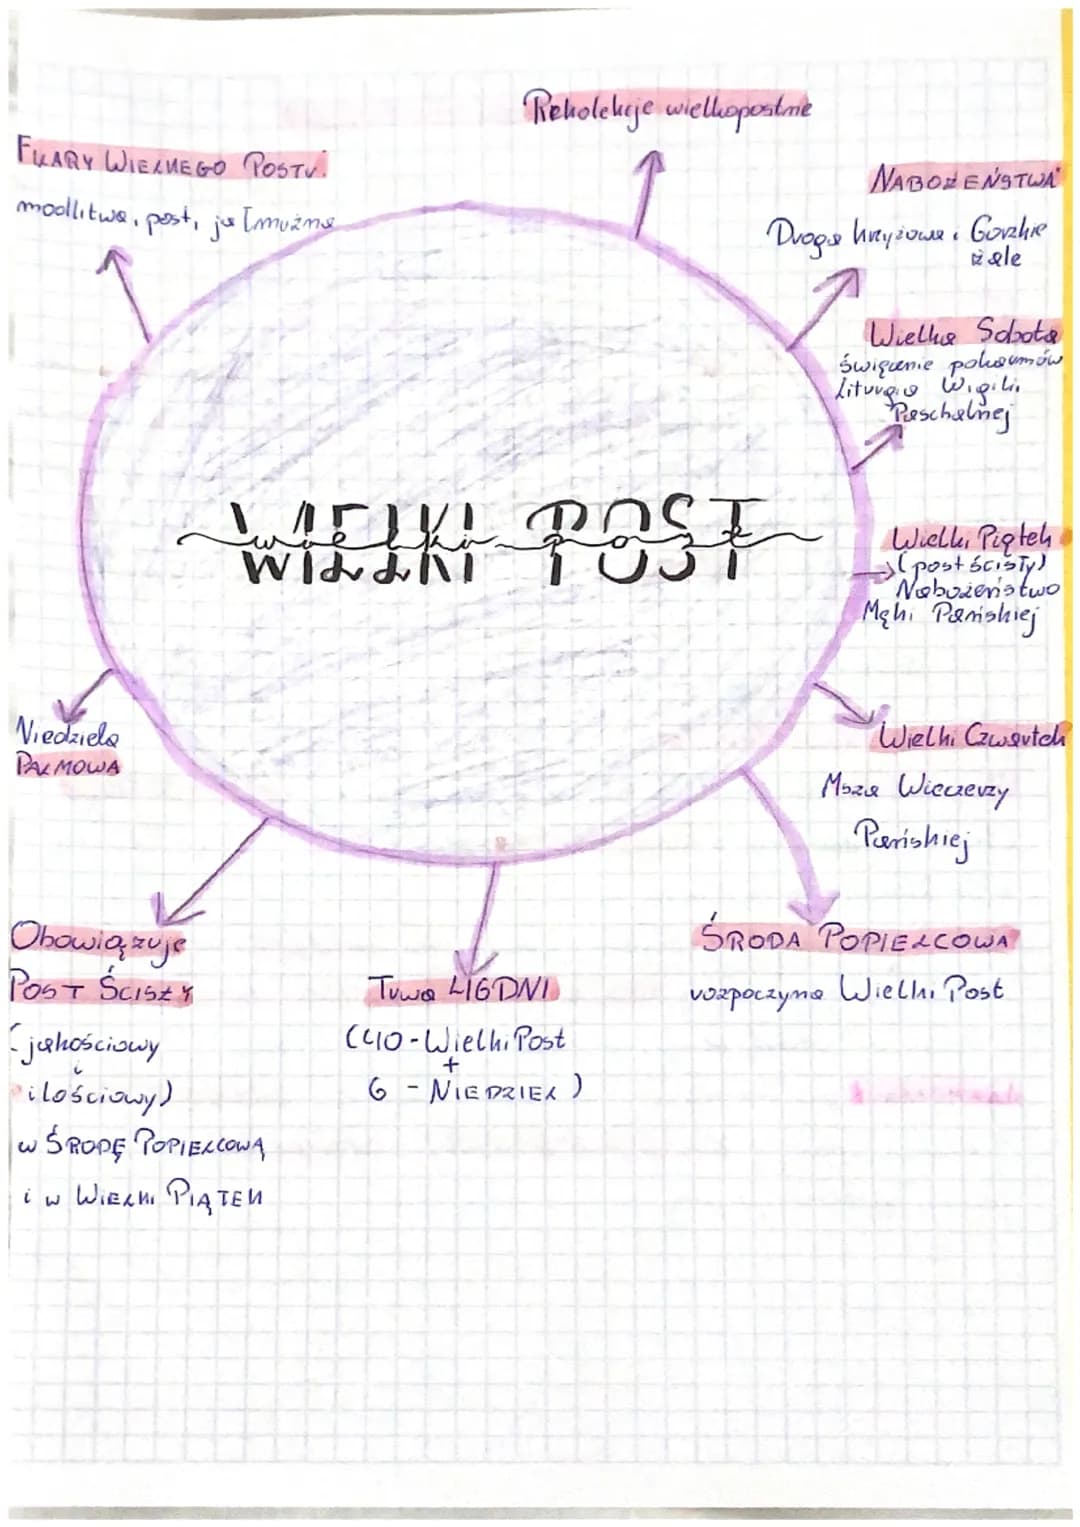 Rekolekcje wielkopostne
FILARY WIELKIEGO POSTU:
modlitwa, post, jałmużna
NABOŻEŃSTWA
Droga krzyżowa i Gorzkie
żale
Wielka Sobota
święcenie pokarmów
Liturgia Wigilii
Paschalnej
WIELKI POST
Wielki Piątek
(post ścisły)
Nabożeństwo
Męki Pańskiej
Niedziela
PALMOWA
Wielki Czwartek
Msza Wieczerzy
Pańskiej
Obowiązuje
POST ŚCISŁY
(jakościowy
i
ilościowy)
w ŚRODĘ POPIELCOWĄ
i w WIELKI PIĄTEK
Trwa 46 DNI
(40 - Wielki Post
+
6 - NIEDZIEL)
ŚRODA POPIELCOWA
rozpoczyna Wielki Post